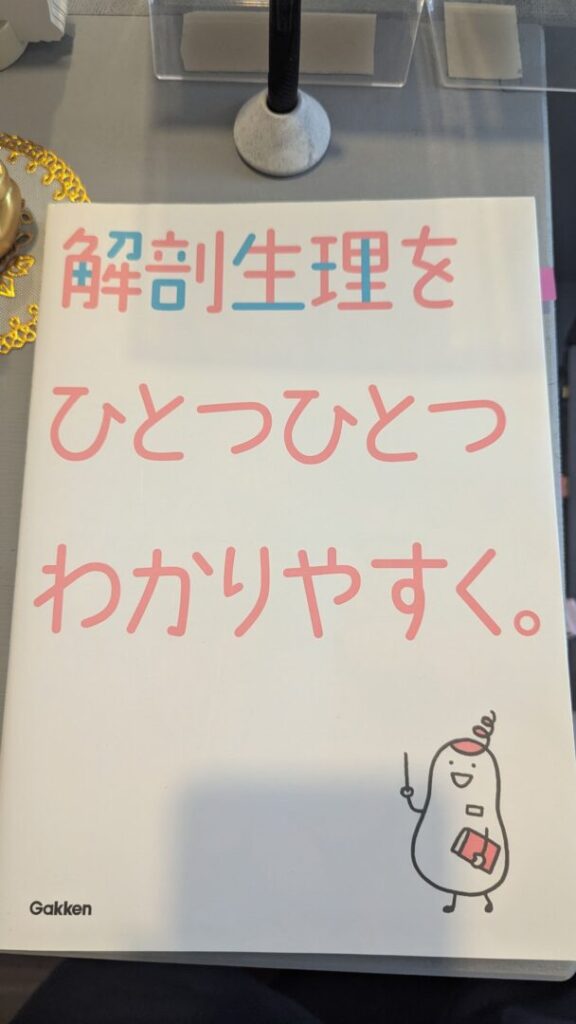 解剖生理を
ひとつひとつ
わかりやすく。
Gakken